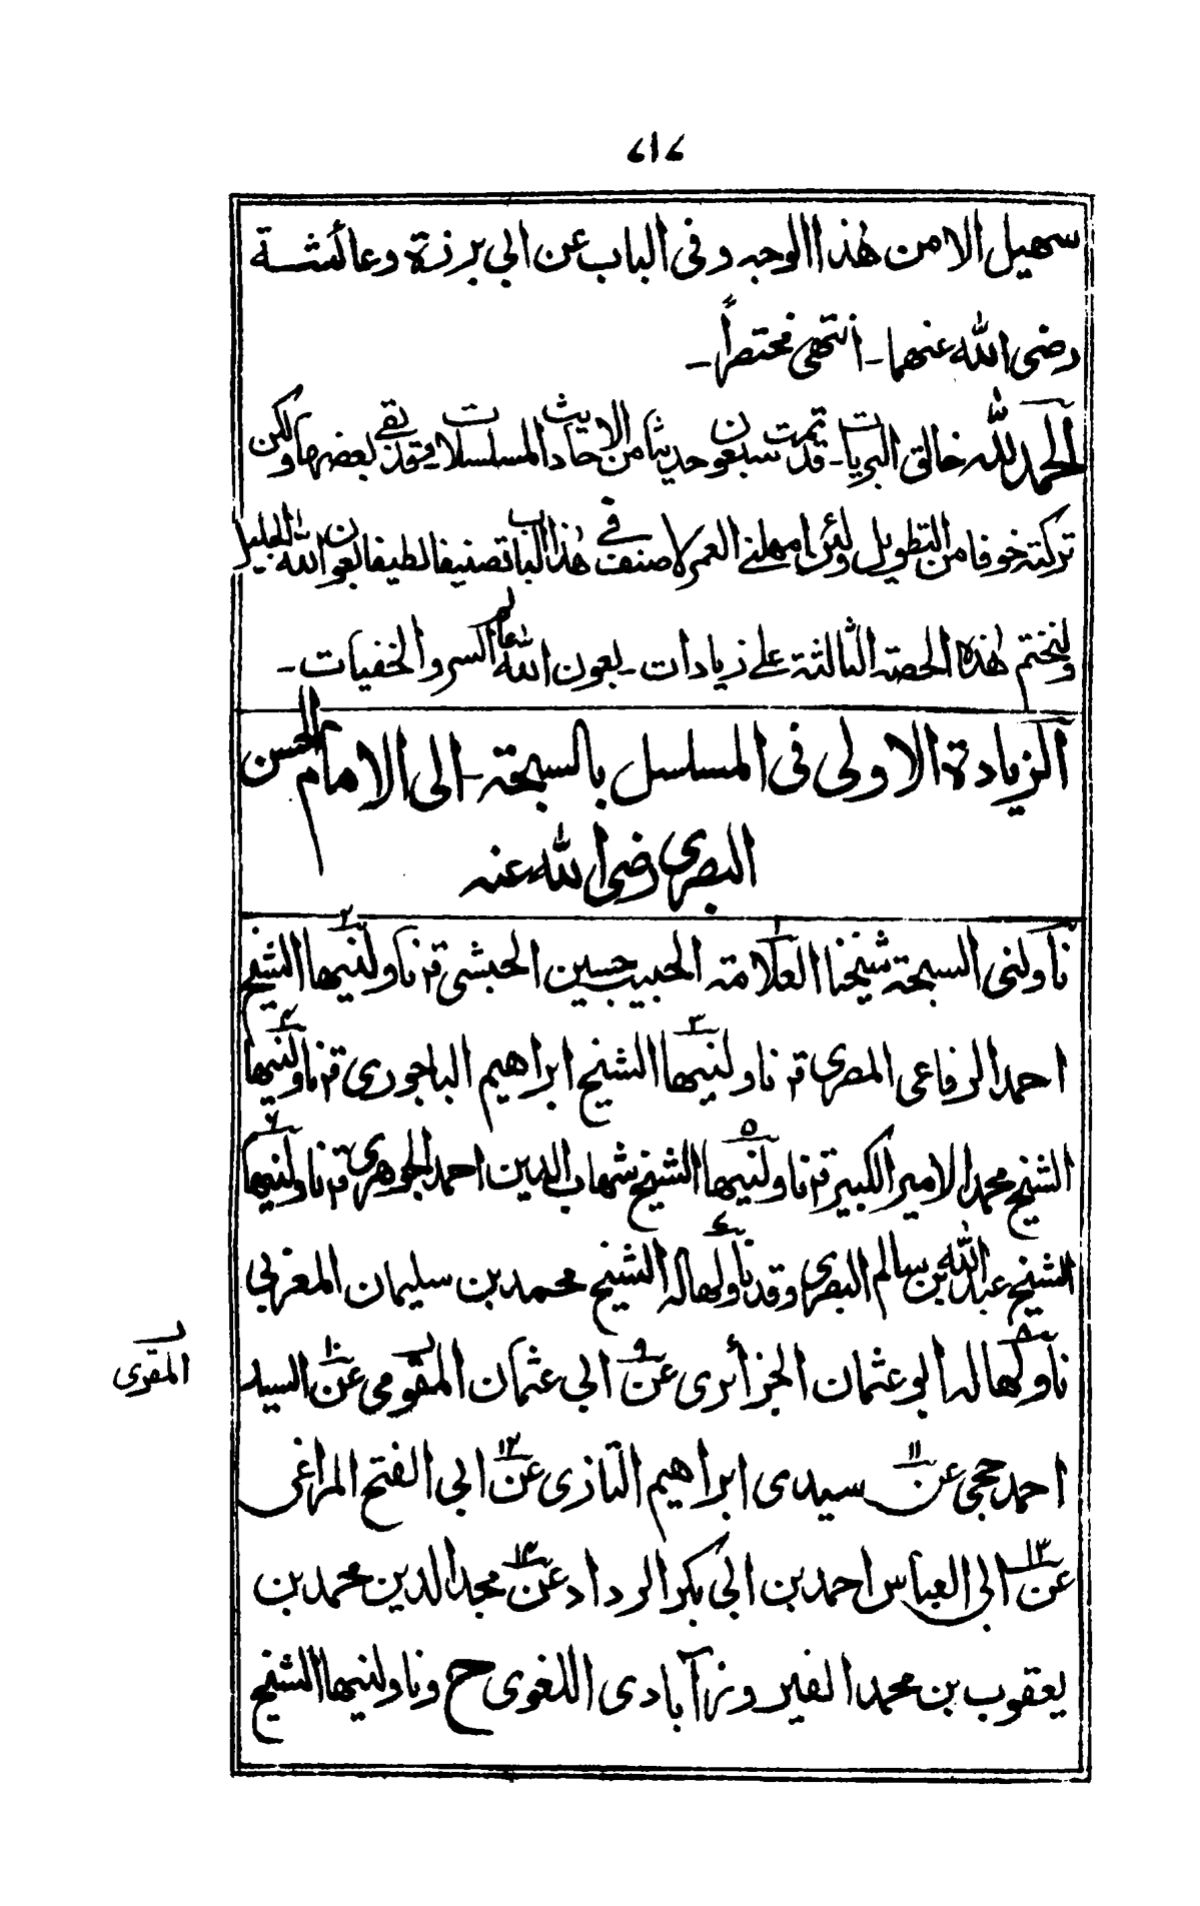 ۷۱۷
سهيل الا من هذا الوجه وفى الباب عن ابى برزة وعائشة
رضى الله عنهما ـ انتهى مختصراً ـ
الحمد لله خالق البريات ـ قد تمت سبعون حديثا من الاحاديث المسلسلات فقد بقى بعضها ولكن
تركته خوفا من التطويل ولئن امهلنى العمر لاصنفت فى هذا الباب تصنيفا لطيفا بعون الله الجليل
ولنختم هذه الحصة الثالثة على زيادات ـ بعون الله عالم السر والخفيات ـ
الزيادة الاولى فى المسلسل بالسبحة ـ الى الامام الحسن
البصرى رضى الله عنه
ناولنى السبحة شيخنا العلامة الحبيب حسين الحبشى قد ناولنيها ٢ الشيخ
احمد الرفاعى المصرى قد ناولنيها ٣ الشيخ ابراهيم الباجورى قد ناولنيها ٤
الشيخ محمد الامير الكبير قد ناولنيها ٥ الشيخ شهاب الدين احمد الجوهرى قد ناولنيها ٦
الشيخ عبد الله بن سالم البصرى وقد ناولها له ٧ الشيخ محمد بن سليمان المغربى
ناولها له ٨ ابو عثمان الجزائرى عن ٩ ابى عثمان المقومى عن ١٠ السيد
المقرى
احمد حجى عن ١١ سيدى ابراهيم التازى عن ١٢ ابى الفتح المراغى
عن ١٣ ابى العباس احمد بن ابى بكر الرداد عن ١٤ مجد الدين محمد بن
يعقوب بن محمد الفيروزآبادى اللغوى ح وناولنيها الشيخ